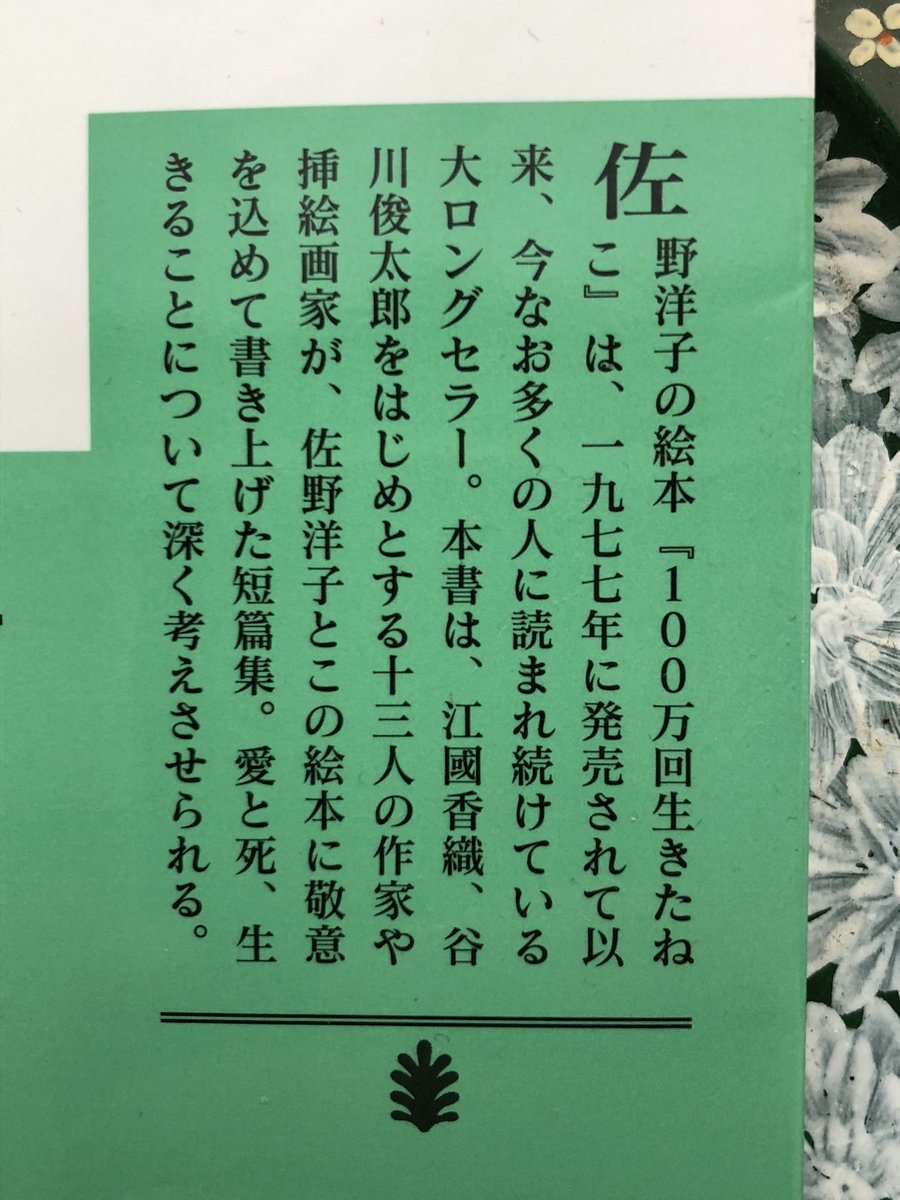 佐野洋子の絵本『100万回生きたね
こ』は、一九七七年に発売されて以
来、今なお多くの人に読まれ続けている
大ロングセラー。本書は、江國香織、谷
川俊太郎をはじめとする十三人の作家や
挿絵画家が、佐野洋子とこの絵本に敬意
を込めて書き上げた短篇集。愛と死、生
きることについて深く考えさせられる。